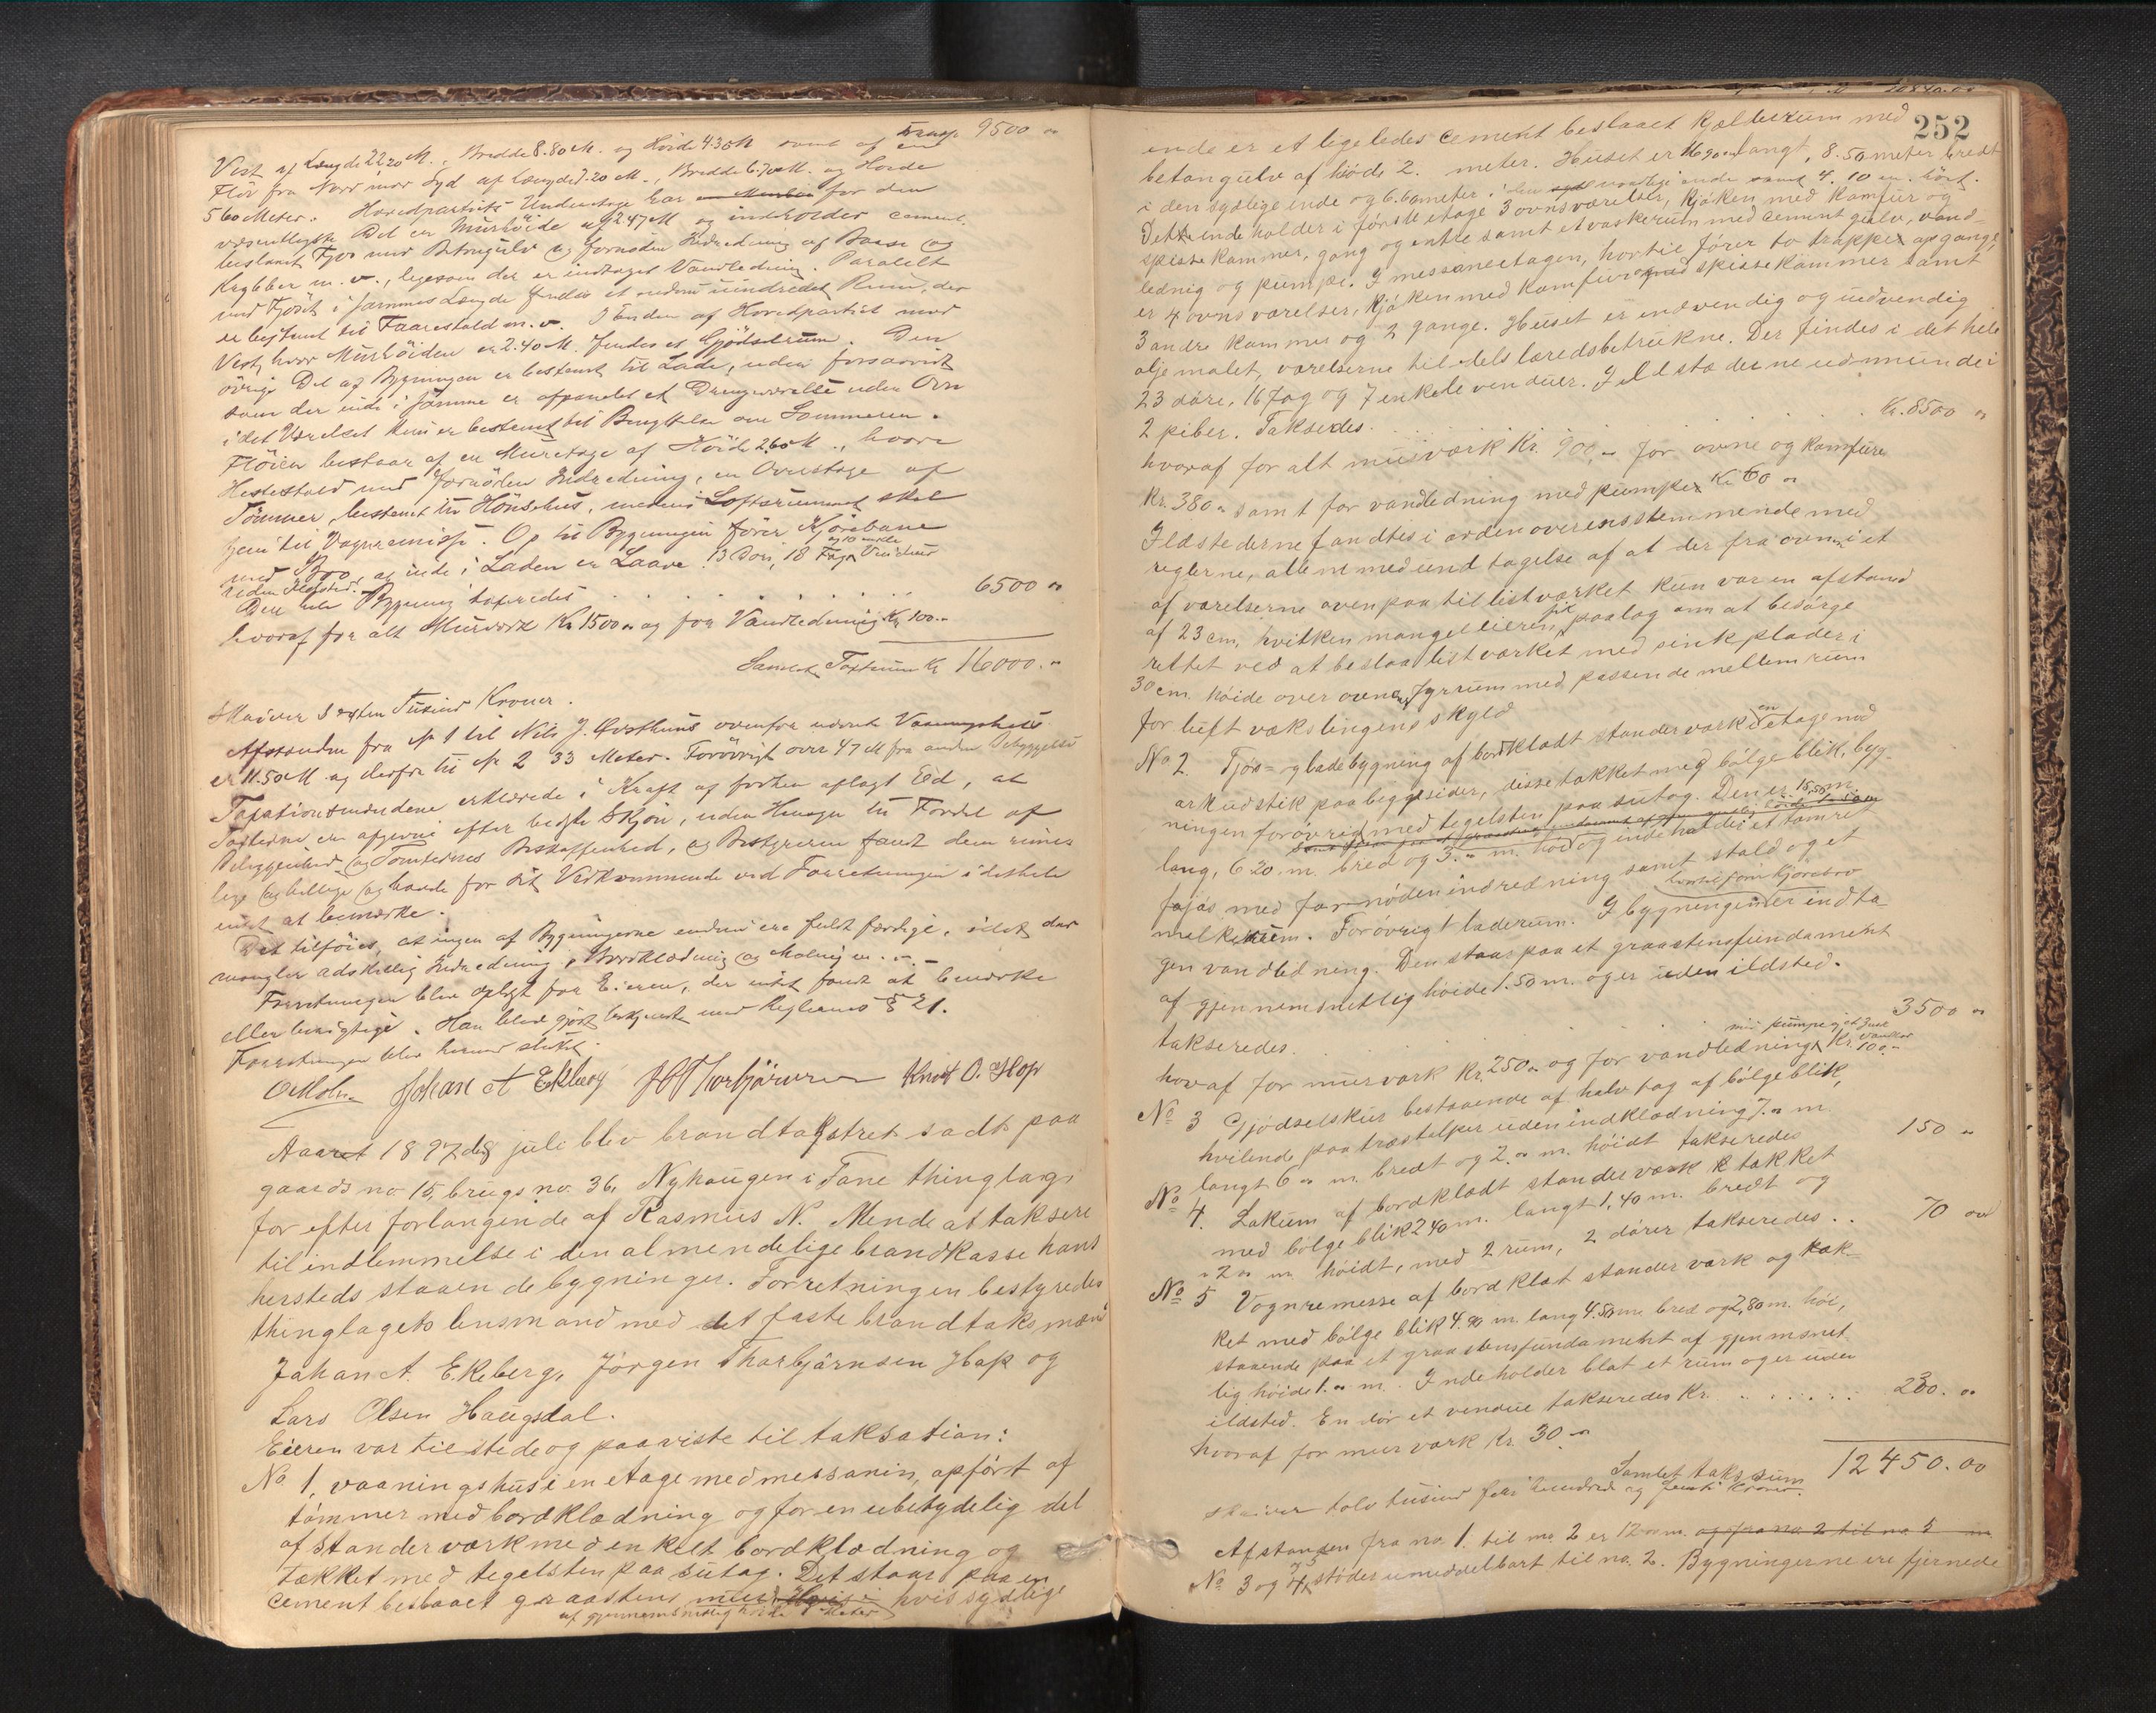 Transp. 9500 "
Vest af Længde 22.20 M., Bredde 8.80 M. og Höide 4.30 M samt af en
Flöi fra Nord mod Syd af Længde 7.20 M., Bredde 6.70 M. og Höide
5.60 Meter. Hovedpartiets Underetage har for den
væsentligste Del en Murhöide af 2.47 M og indeholder cement-
beslaaet Fjös med Betongulv og fornöden Indredning af Baase og
Krybber m. v., ligesom der er indlaget Vandledning. Paralelt
med Fjöset i sammes Længde findes et endnu uindredet Rum, der
er bestemt til Faarestald m. v. I Enden af Hovedpartiet mod
Vest, hvor Murhöiden er 2.40 M. findes et Gjödselrum. Den
övrige Del af Bygningen er bestemt til Lade, uden forsaavidt
som der inde i samme er afpanelet et Drengeværelse uden Ovn
i det Værelset kun er bestemt til Benyttelse om Sommeren.
Flöien bestaar af en Muretage af Höide 2.60 M., hvori
Hestestald med fornöden Indredning, en Overetage af
Tömmer, bestemt til Hönsehus, medens Loftsrummet skal
tjene til Vognremisse. Op til Bygningen förer Kjörebane
med Bro, og inde i Laden er Laave. 13 Döre, 18 Fag og 10 enkle Vinduer
uden Ildsted.
Den hele Bygning taxeredes . . . . . . . . 6500 "
hvoraf for alt Murværk Kr 1500 " og for Vandledning Kr 100."
Samlet Taxtsum Kr 16000. "
skriver Sexten Tusind Kroner.
Afstanden fra No 1 til Nils J. Øvsthuns ovenfor nævnte Vaaningshus
er 11.50 M og derfra til No 2 33 Meter. Forövrigt over 47 M fra anden Bebyggelse
Taxationsmændene erklærede i Kraft af forhen aflagt Ed, at
Taxterne ere afgivne efter bedste Skjön, uden Hensyn til Fordel af
Beliggenhed og Tomternes Beskaffenhed, og Bestyreren fandt dem rime-
lige og billige og havde for sit Vedkommende ved Forretningen idethele
intet at bemærke.
Det tilföies, at ingen af Bygningerne endnu ere fuldt færdige, idet der
mangler adskillig Indredning, Bordklædning og Maling m. v.
Forretningen blev oplæst for Eieren, der intet fandt at bemærke
eller berigtige. Han blev gjort bekjendt med Reglernes § 21.
Forretningen blev hermed sluttet.
O Moln Johan A Ekberg J H Thorbjörnsen Knut O. Hop
Aaret 1897 de 8 juli blev brandtakstret sadt paa
gaards no 15, brugs no. 36, Nyhaugen i Fane thinglag
for efter forlangende af Rasmus N. Mende at taksere
til indlemmelse i den almendelige brandkasse hans
hersteds staaende bygninger. Forretningen bestyredes
thinglagets lensmand med det faste brandtaksmænd
Johan A. Ekeberg, Jörgen Thorbjörnsen Hop og
Lars Olsen Haugsdal.
Eieren var tilstede og paaviste til taksation:
No 1, vaaningshus i en etage med messanin, opfört af
tömmer med bordklædning og for en ubetydelig del
af standerværk med enkelt bordklædning og
tækket med tegelsten paa sutag. Det staar paa en
cement beslaaet graastens mur Hvis i hvis sydlige
af gjennemsnitlig höide Meter
252
ende er et ligeledes cement beslaaet kjælderrum med
betongulv af höide 2. meter. Huset er 16.90 m langt, 8.50 meter bredt
i den sydlige ende og 6.60 meter i den nordlige ende samt 4.10 m. höit.
Dette indeholder i förste etage 3 ovnsværelser, kjöken med kamfur og
spisekammer, gang og entre samt et vaskerum med cement gulv, vand-
ledning og pumpe. I messaneetagen, hortil förer to trapper opgange,
er 4 ovnsværelser, kjöken med kamfur og med spissekammer samt
3 andre kammer og 2 gange. Huset er indvendig og udvendig
oljemalet, værelserne tildels læredsbetrukne. Der findes i det hele
23 döre, 16 fag og 7 enkele venduer. Ildstæderne udmunder i
2 piber. Taksedes . . . . . . Kr. 8500 "
hvoraf for alt muiværk Kr. 900. " for ovne og kamfure
Kr. 380 " samt for vandledning med pumpe Kr 60 "
Ildstederne fandtes i orden overensstemmende med
reglerne, allene med undtagelse af at der fra ovnen i et
af værelserne ovenpaa til listværket kun var en afstand
af 23 cm, hvilken mangel eieren fik paalæg om at besörge
rettet ved at beslaa listværket med sinkplader i
30 cm. höide over ovnens fyrrum med passende mellemrum
for luftvækslingens skyld
No 2. Fjös- og ladebygning af bordklædt standerværk i en etage med
ark udstik paa begge sider, disse tækket med bölgeblik, byg-
ningen forövrigt med tegelsten paa sutag. Den er 15,50 m.
lang, 6.20 m. bred og 3. " m. höi og indeholder et tömret
fojös med fornöden indredning samt stald og et
melkerum. Forövrigt laderum. I bygningen hvortil förer kjörebro er indta-
gen vandledning. Den staar paa et graastensfundament
af gjennemsnitlig höide 1.50 m. og er uden ildsted.
takseredes . . . . . . 3500 "
hovaf for murværk Kr. 250 " og for vandledning Kr. 100. "
No 3 Gjödselskur bestaaende af halv tag af bölgeblik,
hvilende paa træstolper uden indklædning 7. " m
langt 6 " m bredt og 2. " m. höidt takseredes 150 "
No 4. Lakum af bordklædt standerværk tækket
med bölgeblik 2.40 m. langt 1,40 m. bredt og
2 " m höidt, med 2 rum, 2 dörer takseredes . . 70 "
No 5 Vognremesse af bordklæt standerværk og tæk-
ket med bölgeblik 4.90 m. lang 4.50 m bred og 2,80 m. höi,
staaende paa et graastensfundament af gjenmsnet
lig höide 1. " m. Indeholder blot et rum og er uden
ildsted. En dör et vendue takseredes Kr. . . . . . . 230. "
hvoraf for murværk Kr. 30 "
Samlet takssum 12450.00
skriver tolv tusind fire hundrede og femti kroner.
Afstanden fra no. 1. til no. 2 er 12 " m. og fra no. 2 til no. 5 m
No 3 og 4 og 5 stöder umiddelbart til no. 2. Bygningerne ere fjernede